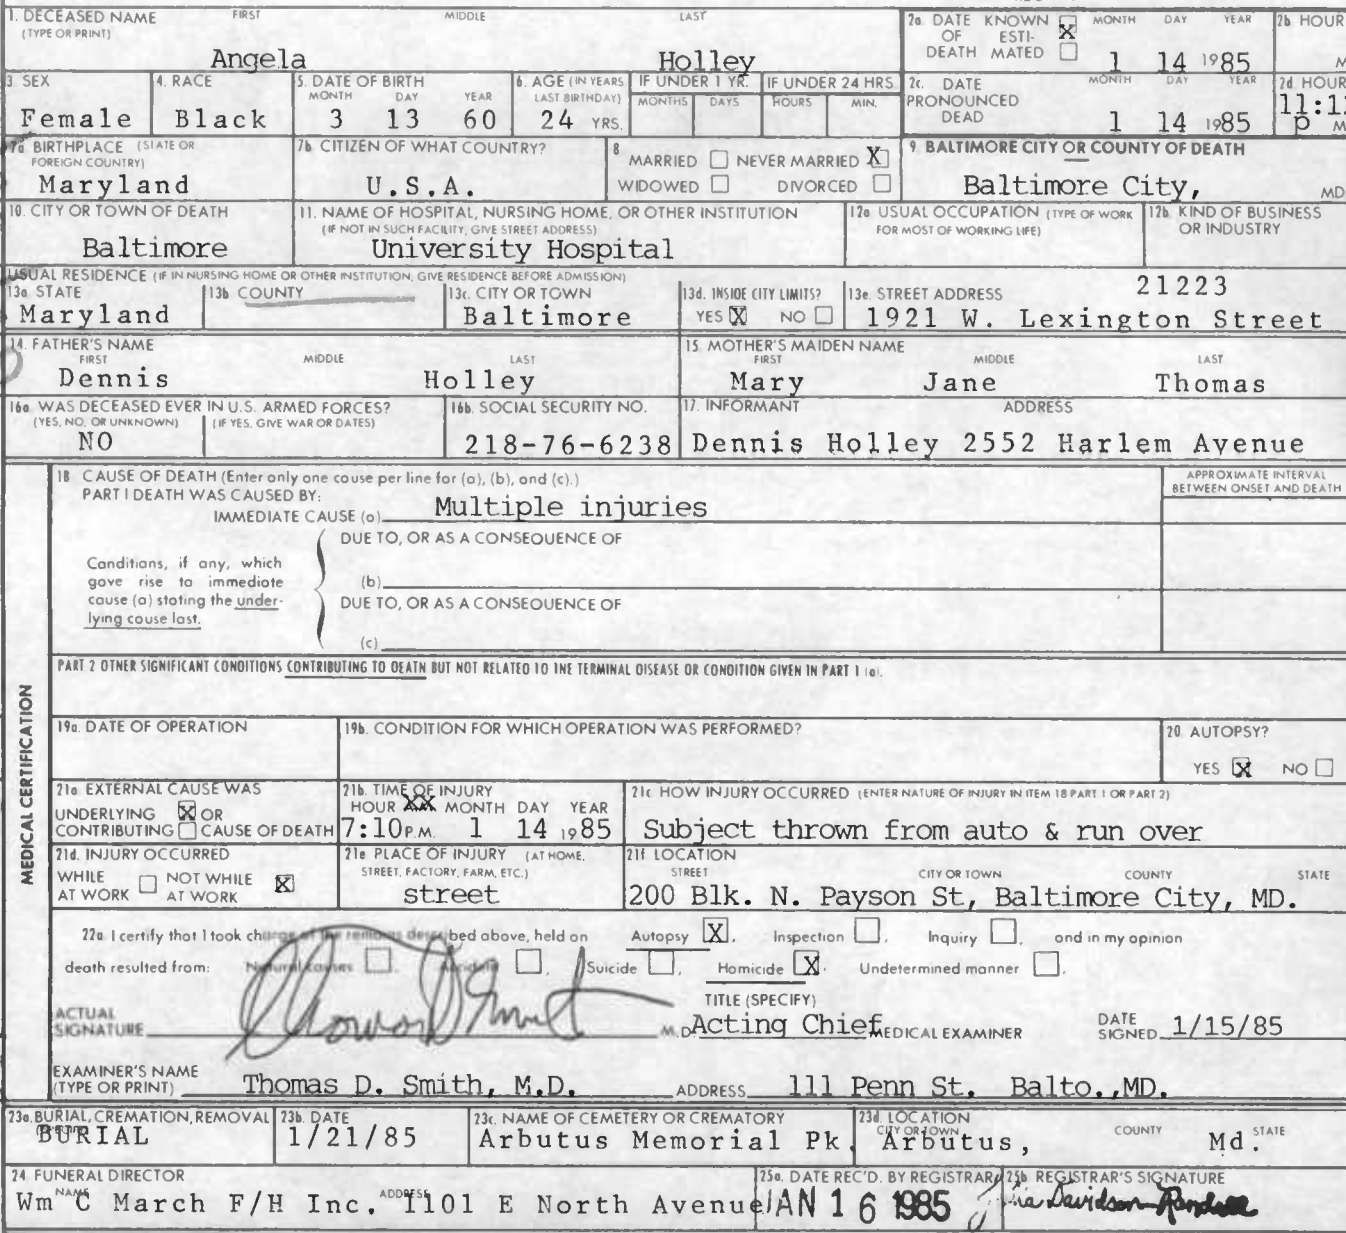 1. DECEASED NAME FIRST MIDDLE LAST
(TYPE OR PRINT)
Angela Holley
2a. DATE KNOWN
OF ESTI-
DEATH MATED
X
MONTH DAY YEAR
1 14 1985
2b HOUR
M
3 SEX
Female
4. RACE
Black
5. DATE OF BIRTH
MONTH DAY YEAR
3 13 60
6. AGE (IN YEARS
LAST BIRTHDAY)
24 YRS.
IF UNDER 1 YR.
MONTHS DAYS
IF UNDER 24 HRS
HOURS MIN.
2c. DATE
PRONOUNCED
DEAD
MONTH DAY YEAR
1 14 1985
2d HOUR
P M
7a BIRTHPLACE (STATE OR
FOREIGN COUNTRY)
Maryland
7b CITIZEN OF WHAT COUNTRY?
U.S.A.
8
MARRIED NEVER MARRIED X
WIDOWED DIVORCED
9. BALTIMORE CITY OR COUNTY OF DEATH
Baltimore City, MD
10. CITY OR TOWN OF DEATH
Baltimore
11. NAME OF HOSPITAL, NURSING HOME, OR OTHER INSTITUTION
(IF NOT IN SUCH FACILITY, GIVE STREET ADDRESS)
University Hospital
12a USUAL OCCUPATION (TYPE OF WORK
FOR MOST OF WORKING LIFE)
12b KIND OF BUSINESS
OR INDUSTRY
USUAL RESIDENCE (IF IN NURSING HOME OR OTHER INSTITUTION, GIVE RESIDENCE BEFORE ADMISSION)
13a STATE
Maryland
13b COUNTY
13c. CITY OR TOWN
Baltimore
13d. INSIDE CITY LIMITS?
YES X NO
13e. STREET ADDRESS 21223
1921 W. Lexington Street
14. FATHER'S NAME
FIRST MIDDLE LAST
Dennis Holley
15 MOTHER'S MAIDEN NAME
FIRST MIDDLE LAST
Mary Jane Thomas
16a WAS DECEASED EVER IN U.S. ARMED FORCES?
(YES, NO, OR UNKNOWN) (IF YES, GIVE WAR OR DATES)
NO
16b. SOCIAL SECURITY NO.
218-76-6238
17. INFORMANT ADDRESS
Dennis Holley 2552 Harlem Avenue
MEDICAL CERTIFICATION
18 CAUSE OF DEATH (Enter only one cause per line for (a), (b), and (c).)
PART I DEATH WAS CAUSED BY:
IMMEDIATE CAUSE (a) Multiple injuries
APPROXIMATE INTERVAL
BETWEEN ONSET AND DEATH
DUE TO, OR AS A CONSEQUENCE OF
Conditions, if any, which
gave rise to immediate
cause (a) stating the under-
lying cause last.
(b)
DUE TO, OR AS A CONSEQUENCE OF
(c)
PART 2 OTHER SIGNIFICANT CONDITIONS CONTRIBUTING TO DEATH BUT NOT RELATED TO THE TERMINAL DISEASE OR CONDITION GIVEN IN PART 1 (a).
19a. DATE OF OPERATION
19b. CONDITION FOR WHICH OPERATION WAS PERFORMED?
20 AUTOPSY?
YES X NO
21a EXTERNAL CAUSE WAS
UNDERLYING X OR
CONTRIBUTING CAUSE OF DEATH
21b. TIME OF INJURY
HOUR XX MONTH DAY YEAR
7:10 P.M. 1 14 1985
21c HOW INJURY OCCURRED (ENTER NATURE OF INJURY IN ITEM 18 PART 1 OR PART 2)
Subject thrown from auto & run over
21d. INJURY OCCURRED
WHILE NOT WHILE
AT WORK AT WORK X
21e PLACE OF INJURY (AT HOME,
STREET, FACTORY, FARM, ETC.)
street
21f LOCATION
STREET CITY OR TOWN COUNTY STATE
200 Blk. N. Payson St, Baltimore City, MD.
22a I certify that I took charge of the remains described above, held on Autopsy X, Inspection , Inquiry , and in my opinion
death resulted from: Natural causes , Accident , Suicide , Homicide X, Undetermined manner .
ACTUAL
SIGNATURE M.D.
TITLE (SPECIFY)
Acting Chief MEDICAL EXAMINER
DATE
SIGNED 1/15/85
EXAMINER'S NAME
(TYPE OR PRINT) Thomas D. Smith, M.D. ADDRESS 111 Penn St. Balto.,MD.
23a. BURIAL, CREMATION, REMOVAL
BURIAL
23b. DATE
1/21/85
23c. NAME OF CEMETERY OR CREMATORY
Arbutus Memorial Pk
23d. LOCATION
CITY OR TOWN COUNTY STATE
Arbutus, Md.
24 FUNERAL DIRECTOR
NAME ADDRESS
Wm C March F/H Inc. 1101 E North Avenue
25a. DATE REC'D. BY REGISTRAR
JAN 16 1985
25b REGISTRAR'S SIGNATURE
Davidson-Randall